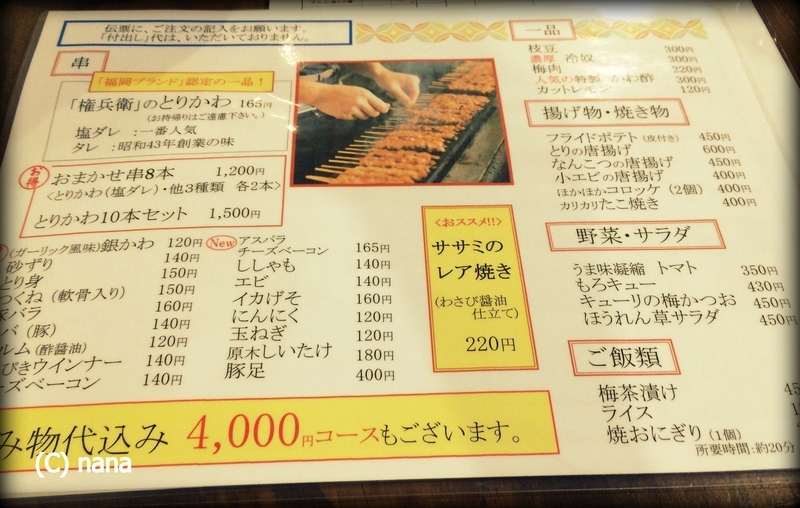 伝票に、ご注文の記入をお願います。
「付出し」代は、いただいておりません。
串
「福岡ブランド」認定の一品！
「権兵衛」のとりかわ 165円
(お持帰りはご遠慮下さい。)
塩ダレ：一番人気
タレ：昭和43年創業の味
お得
おまかせ串8本 1,200円
<とりかわ(塩ダレ)・他3種類 各2本>
とりかわ10本セット 1,500円
(ガーリック風味)銀かわ 120円
砂ずり 140円
とり身 150円
つくね (軟骨入り) 150円
豚バラ 160円
バ (豚) 140円
ルム (酢醤油) 120円
びきウインナー 140円
ーズベーコン 140円
New アスパラ
チーズベーコン 165円
ししゃも 140円
エビ 140円
イカげそ 160円
にんにく 120円
玉ねぎ 120円
原木しいたけ 180円
豚足 400円
<おススメ!!>
ササミの
レア焼き
(わさび醤油
仕立て)
220円
み物代込み 4,000円コースもございます。
一品
枝豆 300円
濃厚 冷奴 300円
梅肉 220円
人気の特製 かわ酢 300円
カットレモン 120円
揚げ物・焼き物
フライドポテト (皮付き) 450円
とりの唐揚げ 600円
なんこつの唐揚げ 450円
小エビの唐揚げ 400円
ほかほかコロッケ (2個) 400円
カリカリたこ焼き 400円
野菜・サラダ
うま味凝縮 トマト 350円
もろキュー 430円
キューリの梅かつお 450円
ほうれん草サラダ 450円
ご飯類
梅茶漬け 45
ライス
焼おにぎり (1個)
所要時間:約20分
(C) nana